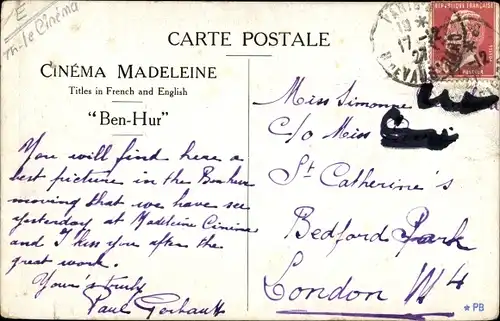 E
m-le Cinéma
CARTE POSTALE
CINÉMA MADELEINE
Titles in French and English
"Ben-Hur"
You will find here a
best picture in the Benhur
moving that we have see
yesterday at Madeleine Cinema
and I kiss you after the
great work.
Your's truly
Paul
PARIS
17 - 12
27
REPUBLIQUE FRANÇAISE
PASTEUR
Miss Simonne
C/o Miss
St Catherine's
Bedford Park
London W4
* PB